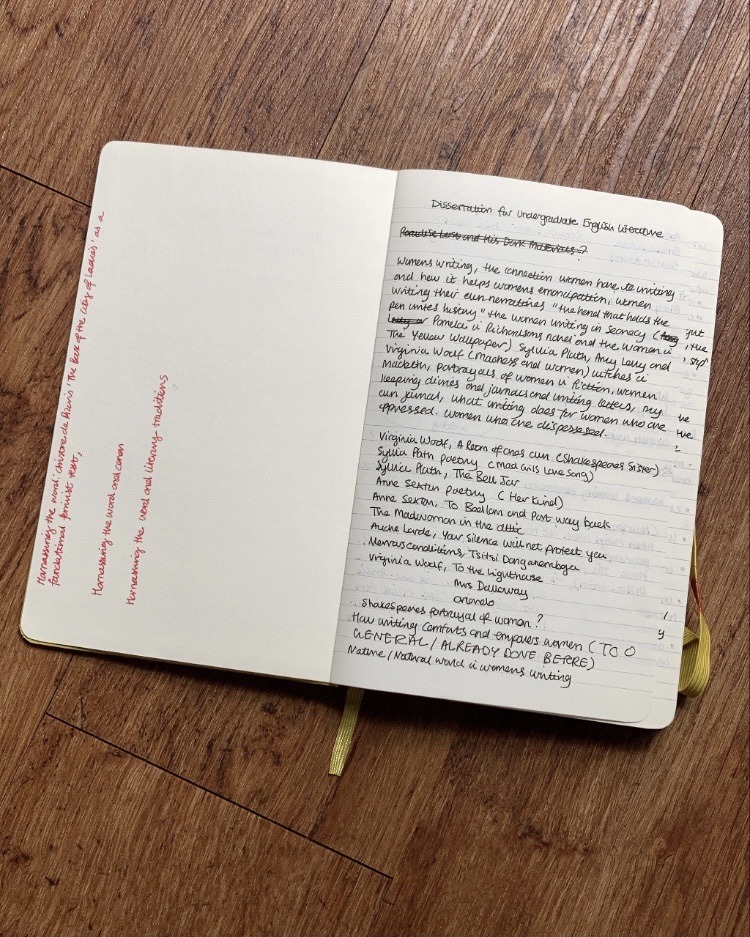 Harnassing the word: Christine de Pizan's 'The Book of the City of Ladies' as a
foundational feminist text,
Harnassing the word and canon
Harnassing the word and literary traditions
Dissertation for Undergraduate English Literature
Paradise Lost and His Dark Materials?
Womens writing, the connection women have to writing
and how it helps womens emancipation, women
writing their own narratives "the hand that holds the
pen writes history" the women writing in secrecy (
Pamela in Richardsons novel and the woman in
The Yellow Wallpaper) Sylvia Plath, Amy Levy and
Virginia Woolf (Madness and women) witches in
Macbeth, portrayals of women in fiction, women
keeping diaries and journals and writing letters, my
own journal, what writing does for women who are
oppressed. Women who are dispossessed.
Virginia Woolf, A Room of ones own (Shakespeares Sister)
Sylvia Path poetry (Mad Girls Love Song)
Sylvia Plath, The Bell Jar
Anne Sexton poetry (Her Kind)
Anne Sexton, To Bedlam and Part way back
The Madwoman in the attic
Audre Lorde, Your Silence will not protect you
Nervous Conditions, Tsitsi Dangarembga
Virginia Woolf, To the Lighthouse
Mrs Dalloway
Orlando
Shakespeares portrayal of women?
How writing comforts and empowers women (TOO
GENERAL / ALREADY DONE BEFORE)
Nature / Natural world in womens writing